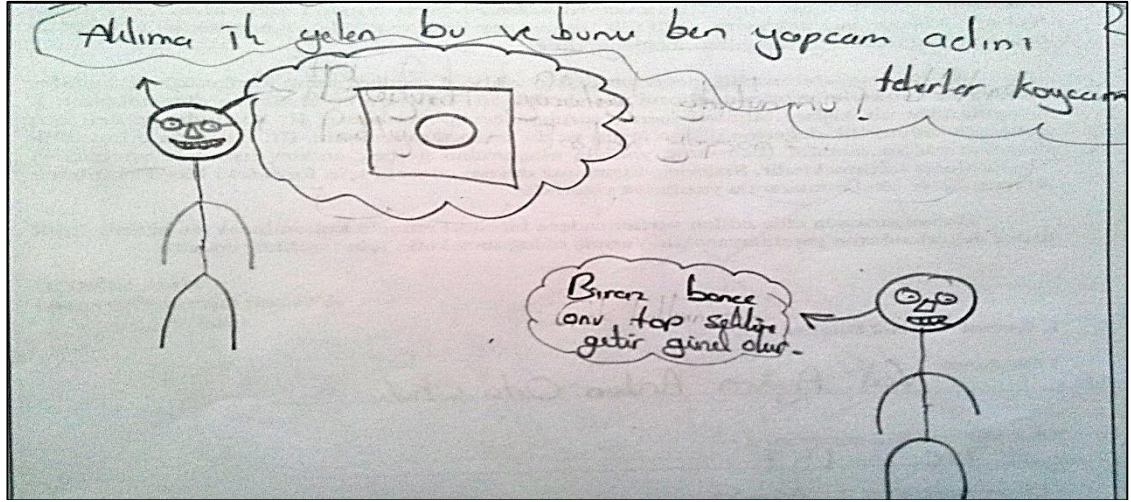 Aklıma ilk gelen bu ve bunu ben yapcam adını
tekerler koycam
Biraz bence
onu top şekline
getir güzel olur.